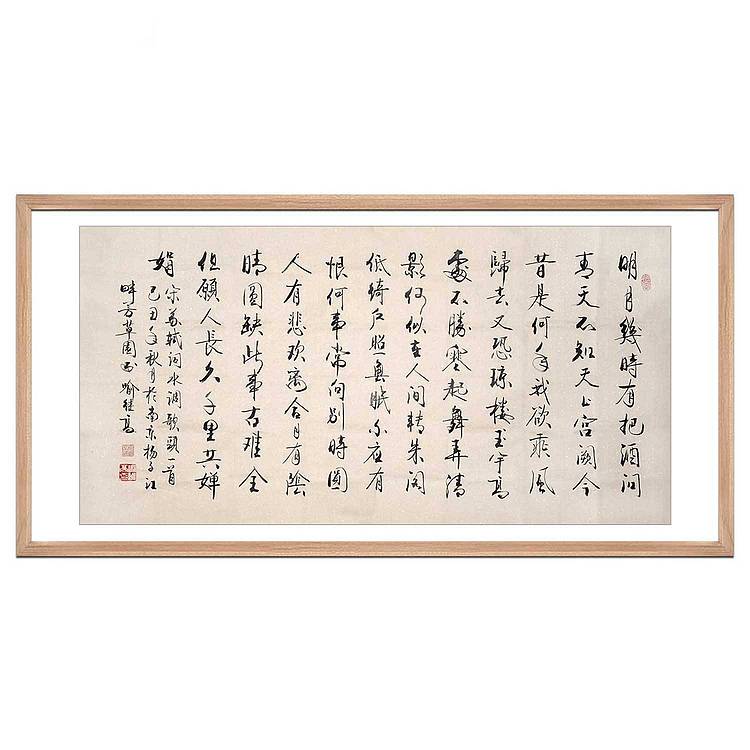 明月幾時有把酒問
青天不知天上宮闕今
昔是何年我欲乘風
歸去又恐瓊樓玉宇高
處不勝寒起舞弄清
影何似在人间轉朱阁
低綺户照無眠不應有
恨何事常向别時圓
人有悲歡離合月有陰
晴圓缺此事古難全
但願人長久千里共嬋
娟
宋蘇軾词水调歌頭一首
己丑年秋月於南京揚子江
畔芳草園西喻继高